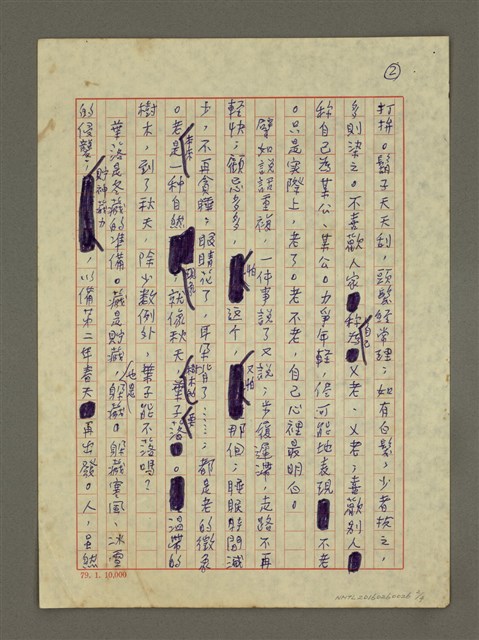 ②
打拚。鬍子天天刮，頭髮經常理；如有白髮，少者拔之，
多則染之。不喜歡人家称自己為乂老、乂老；喜歡别人
称自己為某公、某公。力爭年輕，儘可能地表現不老
。只是实際上，老了。老不老，自己心裡最明白。
譬如說話重複，一件事說了又說；步履遲滯，走路不再
輕快；顧忌多多，怕这个，又怕那個；睡眠時間減
少，不再貪睡；眼睛花了，耳朵背了……；都是老的徵象
。老本來是一种自然現象，就像秋天，樹木的葉子要落。溫帶的
樹木，到了秋天，除少数例外，葉子能不落嗎？
葉落是冬藏的準備。藏是貯藏，也是躲藏。躲藏寒風、冰雪
的侵襲；貯神蓄力，以備第二年春天再出發。人，虽然
79. 1. 10,000